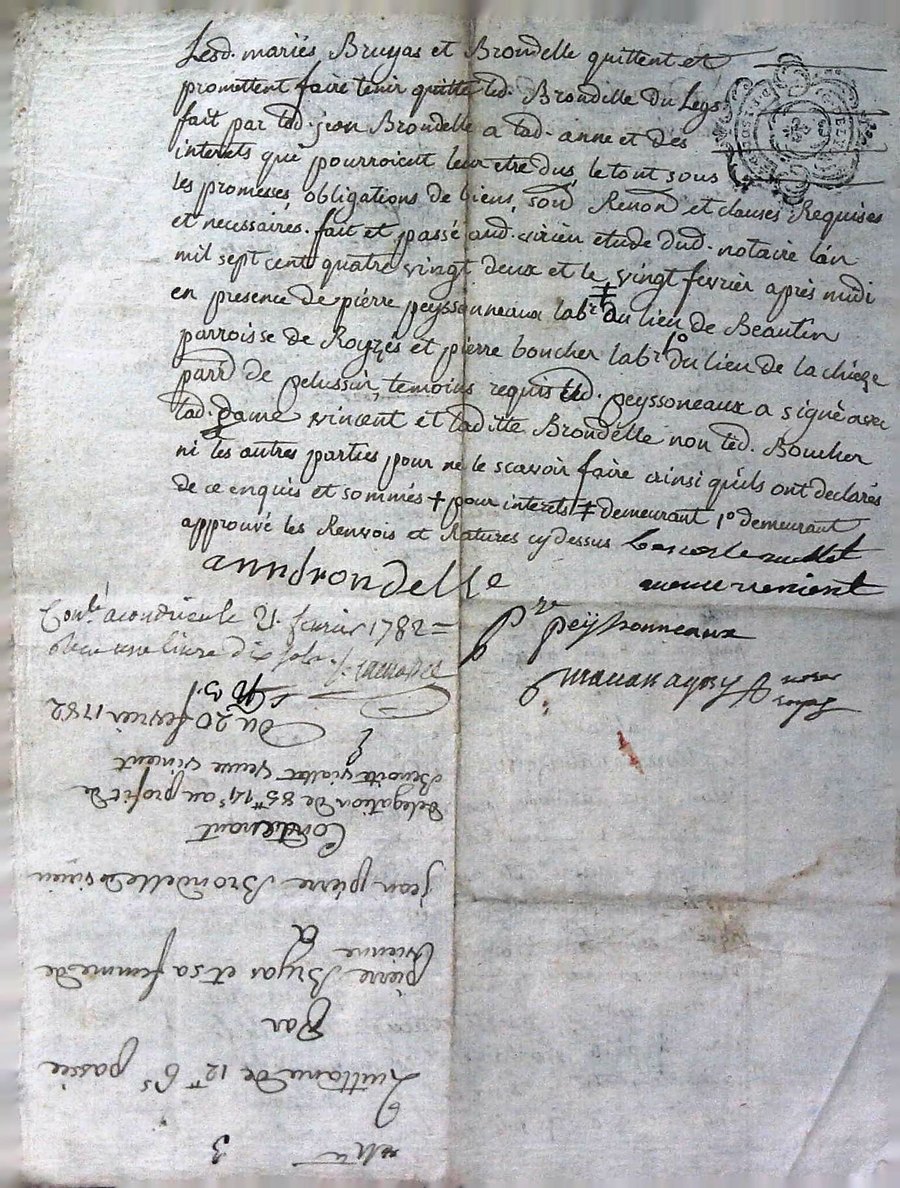 Lesd. mariés Bruyas et Brondelle quittent et
promettent faire tenir quitte led. Brondelle du Legs
fait par led. jean Brondelle a lad. anne et des
interets que pourroient leur etre dus, le tout sous
les promesses, obligations de biens, soud Renon et clauses Requises
et necessaires. fait et passé aud. virieu etude dud. notaire l'an
mil sept cent quatre vingt deux et le vingt fevrier après midi
en presence de pierre peyssonneaux labr ‡ du lieu de Beautin
parroisse de Royzes et pierre boucher labr 1º du lieu de la chieze
parr de pelussin, temoins requis led. peyssoneaux a signé avec
lad. dame vincent et laditte Brondelle non led. Boucher
ni les autres parties pour ne le scavoir faire ainsi qu'ils ont declarés
de ce enquis et sommés + pour interets ‡ demeurant 1º demeurant
approuvé les Renvois et Ratures cy dessus
anne brondelle
vincent
Contlé a condrieu le 21. fevrier 1782 =
une livre dix sols
prre peyssonneaux
nore
royal
Du 20 fevrier 1782
Benoite viallet veuve vincent
delegation de 85tt 14s au profit de
Contenant
jean pierre Brondelle de virieu
a
vienne
pierre Bruyas et sa femme de
Par
Quittance de 12tt 6s passée
3